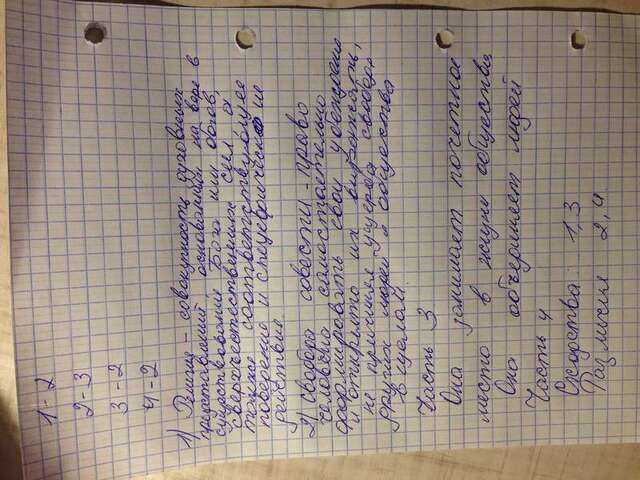 1-2
2-3
3-2
4-2
1) Религия - совокупность духовных
представлений, основанных на вере в
существование Бога или богов,
сверхъестественных сил, а
также соответствующее
поведение и специфические
действие
2) Свобода совести - право
человека самостоятельно
формировать свои убеждения
и открыто их выражать,
не причиняя ущерба свободе
других людей и общества
в целом.
Часть 3
Она занимает почетное
место в жизни общества.
Она объединяет людей
Часть 4
Сходства: 1,3
Различия 2,4